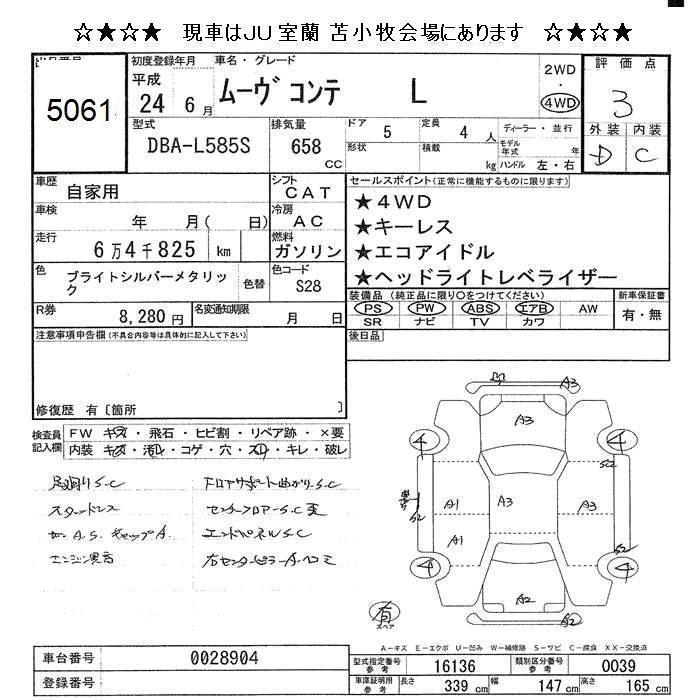 ☆★☆★ 現車はJU室蘭 苫小牧会場にあります ☆★☆★
5061
初度登録年月
平成
24 6月
車名・グレード
ムーヴ コンテ L
2WD
・
4WD
評価点
3
外装 内装
D C
型式
DBA-L585S
排気量
658
CC
ドア 5
定員 4 人
形状
積載 kg
ディーラー・並行
モデル年式 年
ハンドル 左・右
車歴 自家用
シフト CAT
車検 年 月( 日)
冷房 AC
走行 6万4千825 km
燃料 ガソリン
色 ブライトシルバーメタリック
色替
色コード S28
R券 8,280円
名変通知期限 月 日
セールスポイント(正常に機能するものに限ります)
★4WD
★キーレス
★エコアイドル
★ヘッドライトレベライザー
装備品(純正品に限り○をつけてください)
PS PW ABS エアB AW
SR ナビ TV カワ
新車保証書
有・無
後日品
注意事項申告欄(不具合内容等は具体的に記入して下さい)
修復歴 有〔箇所 〕
検査員記入欄
FW キズ・飛石・ヒビ割・リペア跡・×要
内装 キズ・汚レ・コゲ・穴・スレ・キレ・破レ
足廻りS.C
スタッドレス
エンジン異音
フロアサポート曲がりS.C
センターフロアーS.C
エンドパネルS.C
右センターピラーA.ヘコミ
A3
A3
4 4
S2
A1 A3
S2
A1
S2
4 4
A2
A2
有
スペア
A-キズ E-エクボ U-凹み W-補修跡 S-サビ C-腐食 XX-交換済
車台番号 0028904
登録番号
型式指定番号 参考 16136
類別区分番号 参考 0039
車庫証明用 参考 長さ 339 cm 幅 147 cm 高さ 165 cm